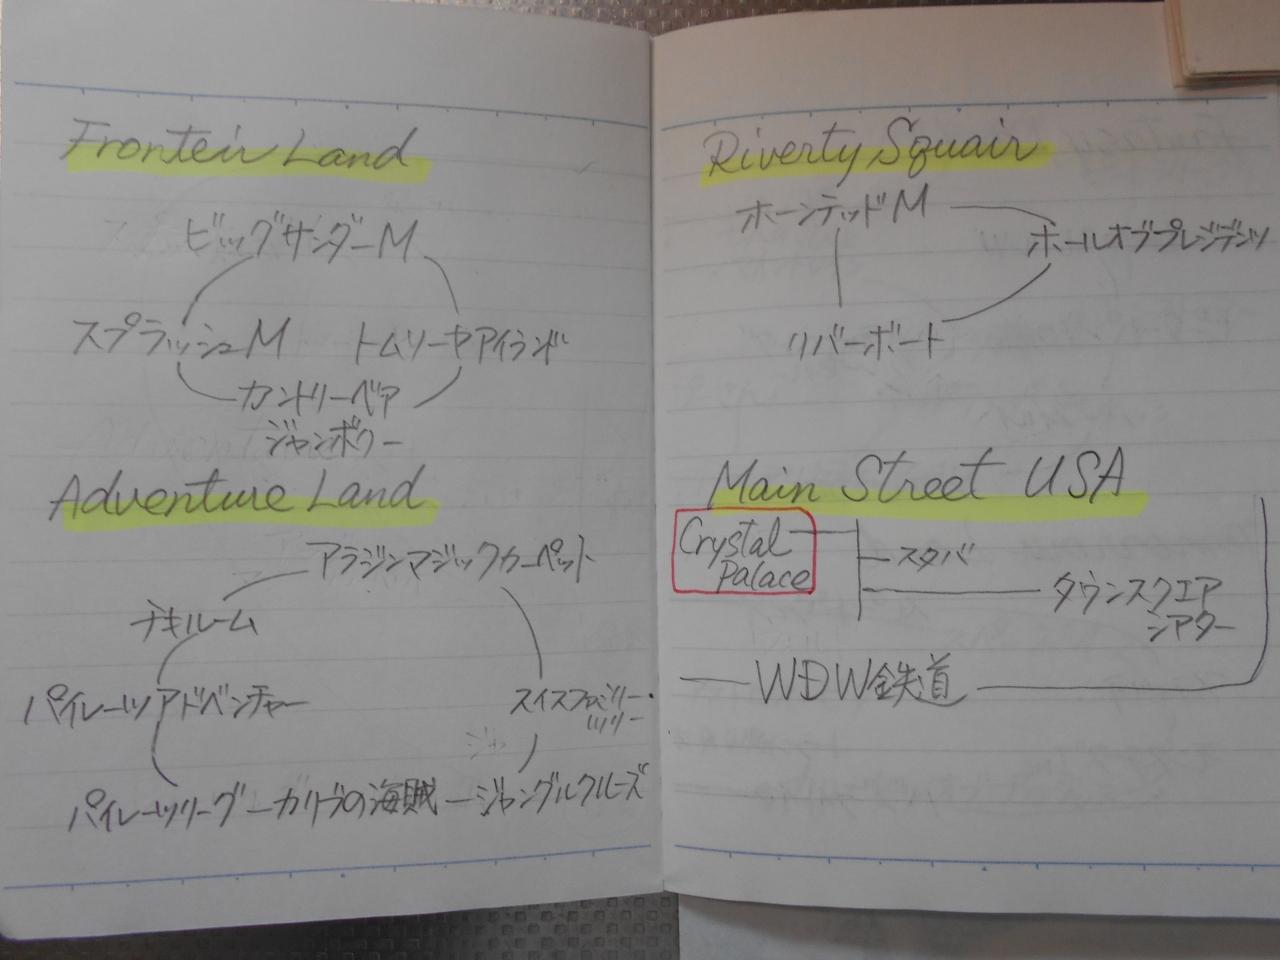 Fronteir Land
ビッグサンダーM
スプラッシュM
トムソーヤアイランド
カントリーベア
ジャンボリー
Adventure Land
アラジンマジックカーペット
チキルーム
パイレーツアドベンチャー
スイスファミリー
ツリー
パイレーツリーグ
カリブの海賊
ジャングルクルーズ
Riverty Squair
ホーンテッドM
ホールオブプレジデンツ
リバーボート
Main Street USA
Crystal
Palace
スタバ
タウンスクエア
シアター
WDW鉄道